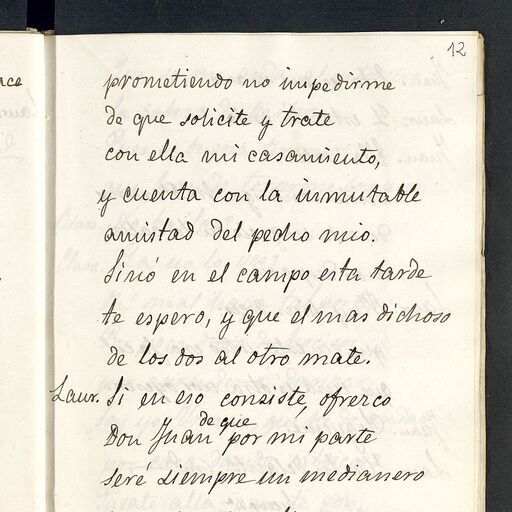 12
prometiendo no impedirme
de que solicite y trate
con ella mi casamiento,
y cuenta con la inmutable
amistad del pecho mio.
Sinó en el campo esta tarde
te espero, y que el mas dichoso
de los dos al otro mate.
Laur. Si en eso consiste, ofrezco
de que
Don Juan, por mi parte
seré siempre un medianero